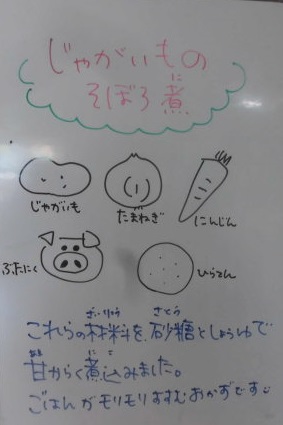 じゃがいもの
そぼろ煮
に
じゃがいも
たまねぎ
にんじん
ぶたにく
ひらてん
ざいりょう さとう
これらの材料を、砂糖としょうゆで
あま に こ
甘からく煮込みました。
ごはんがモリモリすすむおかずです